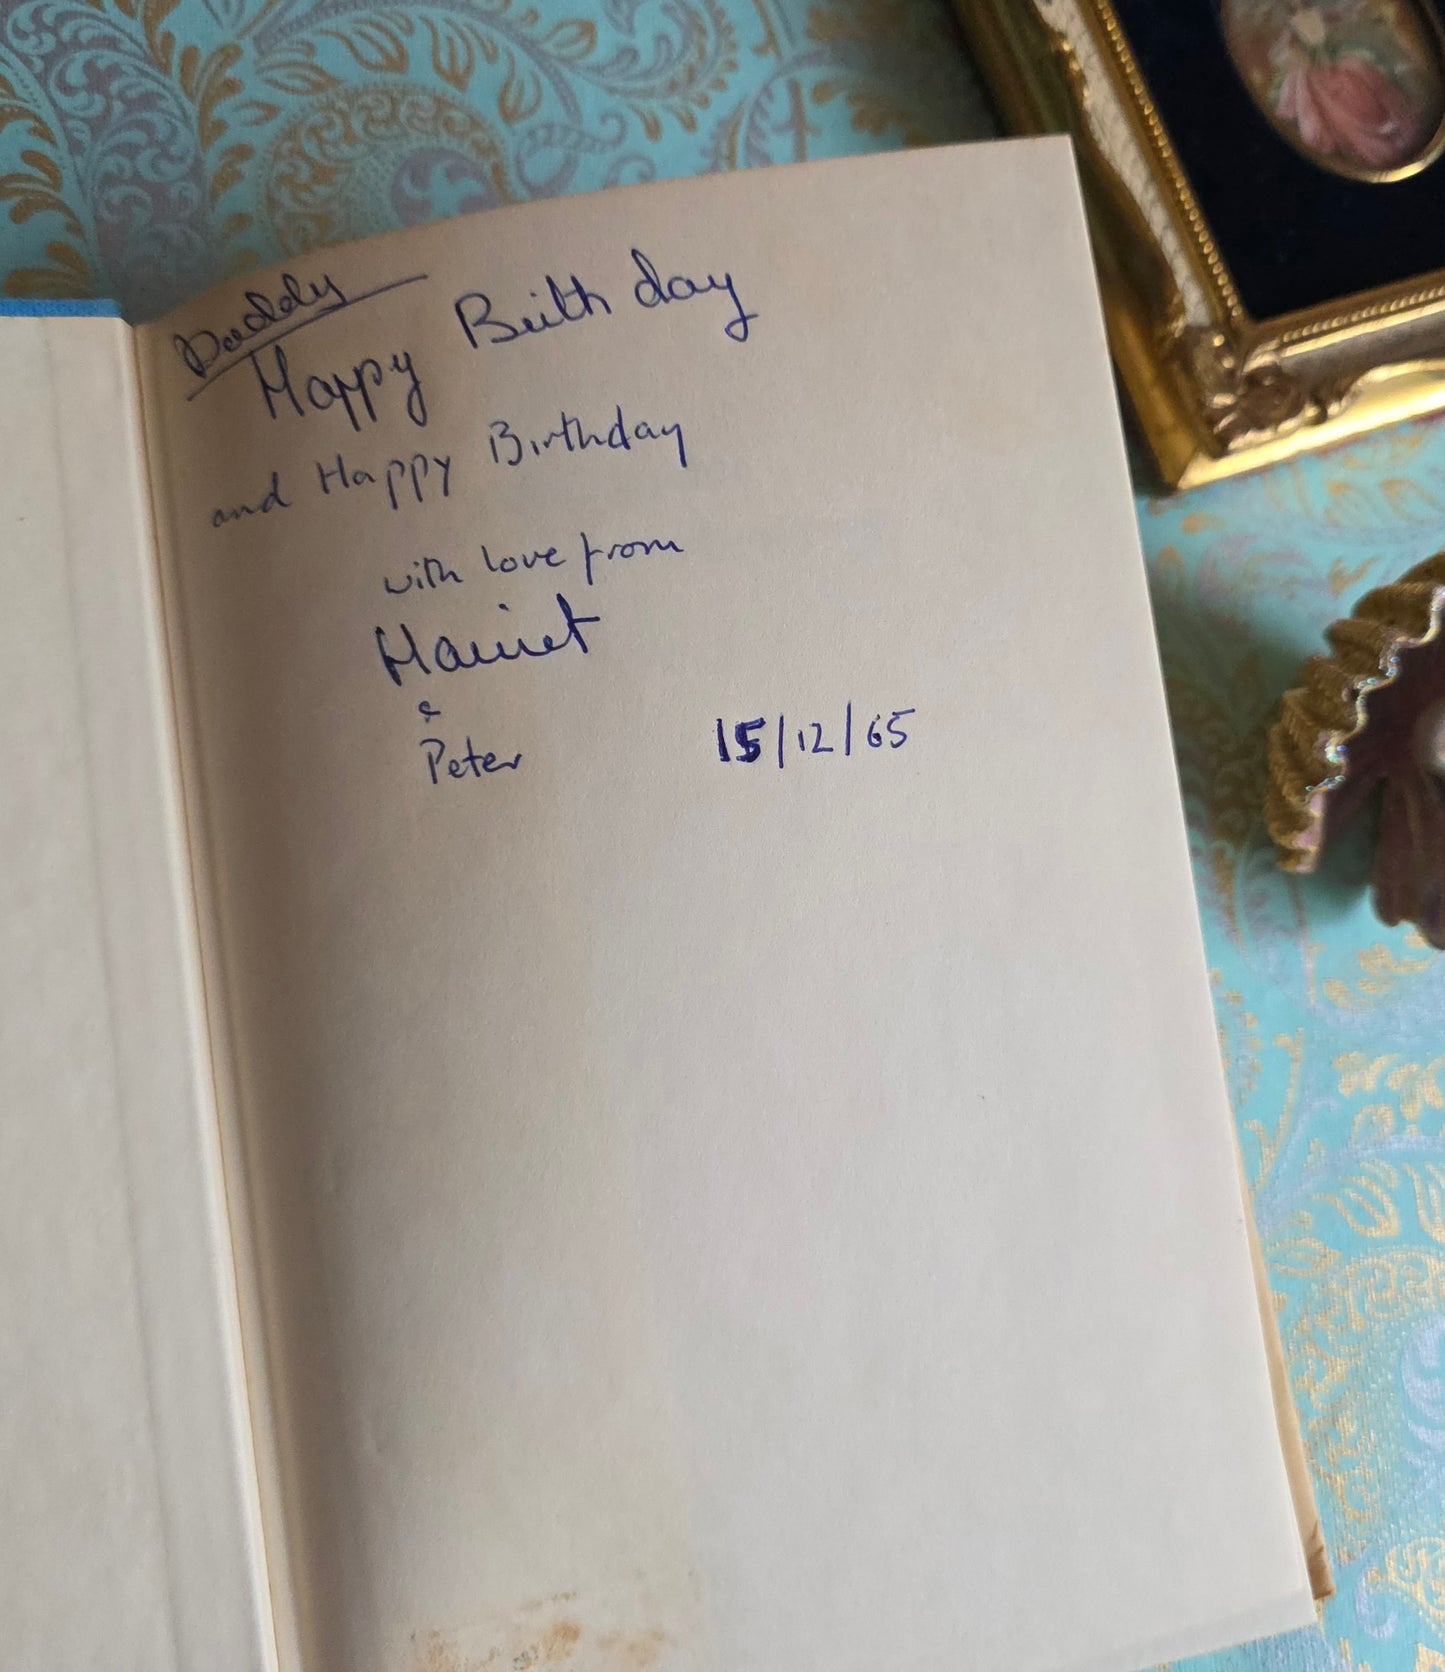 Daddy
Happy Birthday
and Happy Birthday
with love from
Harriet
&
Peter 15/12/65